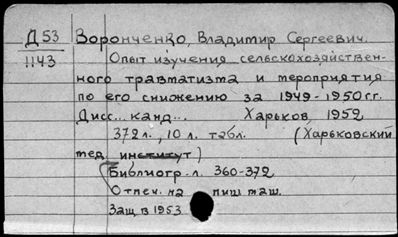 Д 53 Воронченко, Владимир Сергеевич.
1143 Опыт изучения сельскохозяйствен-
ного травматизма и мероприятия
по его снижению за 1949-1950 г.г.
Дисс... канд... Харьков, 1952
372 л., 10 л. табл. (Харьковский
мед. институт)
Библиогр. л. 360-372
Отпеч. на пиш. маш.
Защ. в 1953